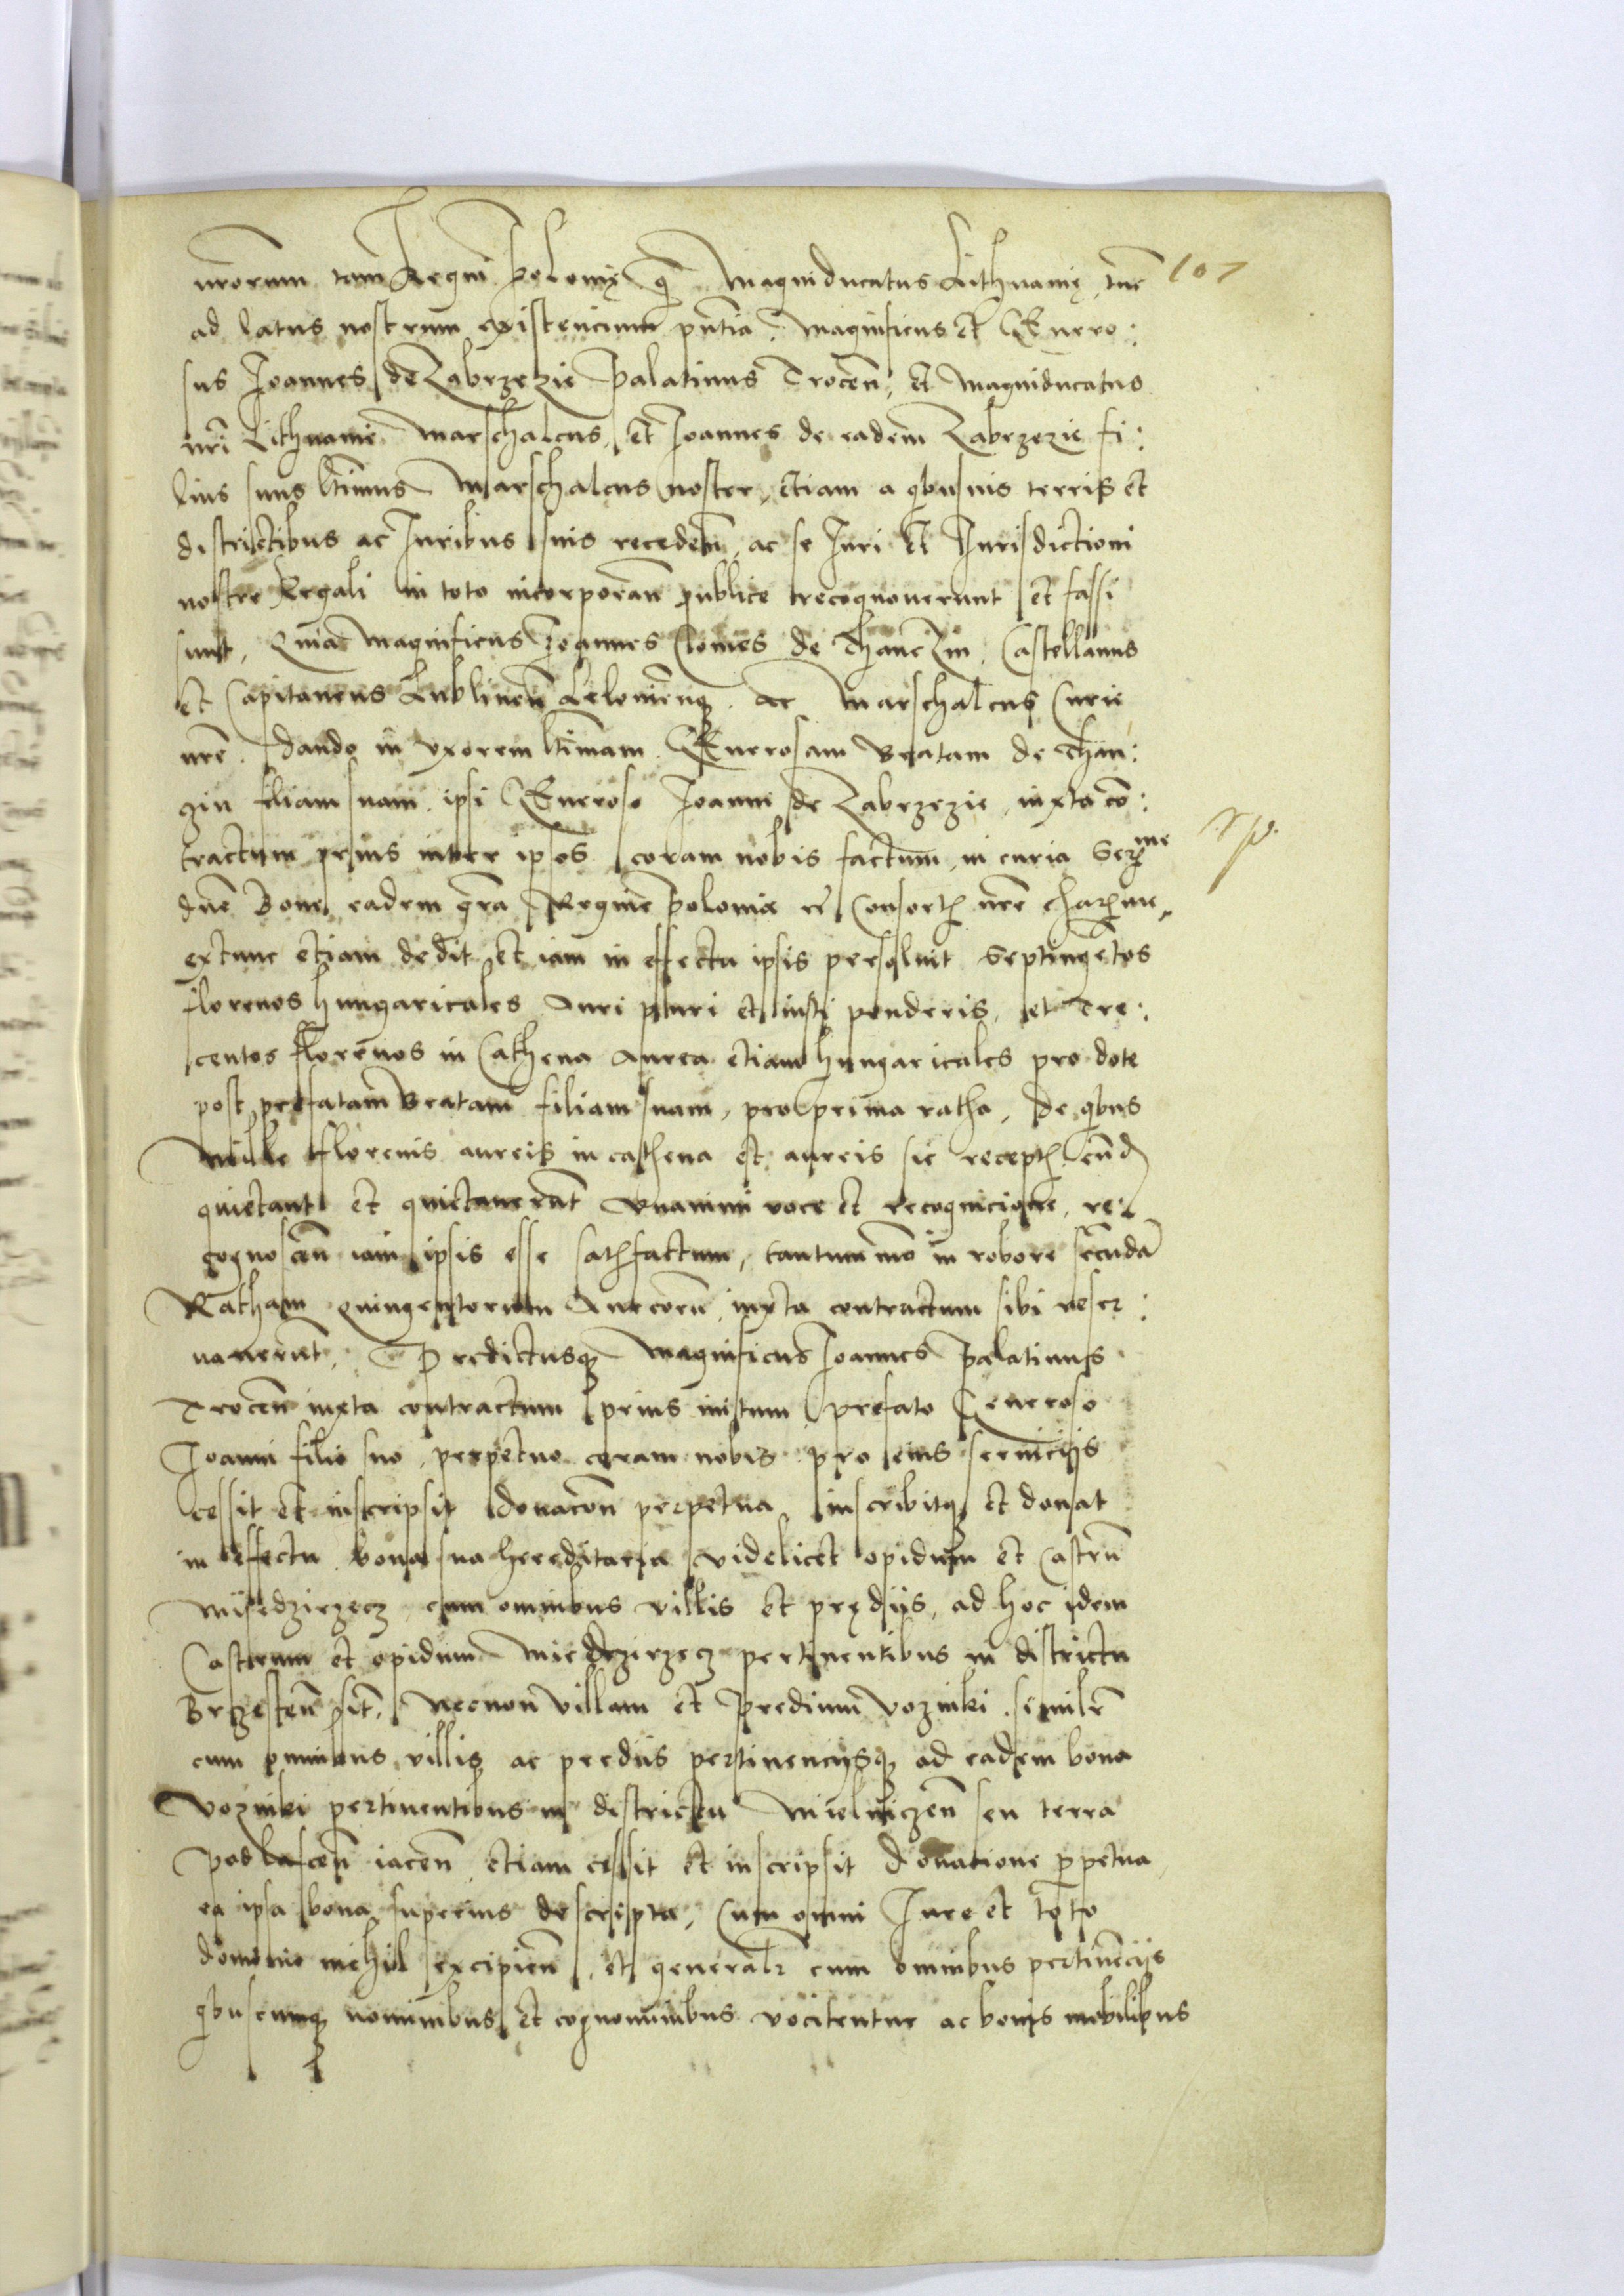 nrorum tam Regni Polonię q̃ Magniducatus Lithuanię, tunc 107
ad latus nostrum existencium pn̄tia. Magnificus et Genero:
sus Joannes de Zabrzezie Palatinus Trocen̄, et Magniducatus
nr̄i Lithuanie Marschalcus, et Joannes de eadem Zabrzezie fi:
lius suus lt̄imus Marschalcus noster, etiam a qbusuis terris et
districtibus ac Juribus suis receden̄, ac se Juri et Jurisdictioni
nostre Regali in toto incorporan̄ publice recognouerunt et fassi
sunt, Quia Magnificus Joannes Comes de Thanczin, Castellanus
et Capitaneus Lublinen̄ Lelouienq̃, ac Marschalcus Curie
nr̄e, dando in vxorem lt̄imam Generosam Beatam de Than:
zin filiam suam, ipsi Generoso Joanni de Zabrzezie, iuxta con̄:
tractum prius inter ipsos coram nobis factum, in curia Ser̄me
dn̄e Bone eadem gr̄a Regine Polonie etc̄ Consortis nr̄e charme,
extunc etiam dedit et iam in effectu ipsis persoluit Septingētos
florenos hungaricales Auri puri et iusti ponderis, et Tre:
centos florenos in Cathena aurea etiam hungaricales pro dote
post prefatam Beatam filiam suam, pro prima ratha, de qbus
Mille florenis aureis in cathena et aureis sic recept. eūd
quietant et quietauerūt vnanimi voce et recognicione, re:
cognoscen̄ iam ipsis esse satisfactum, tantummō in robore secundā
Ratham quingentorum Aureorū, iuxta contractum sibi reser:
uauerūt. Predictusq̃ Magnificus Joannes Palatinus
Trocen̄ iuxta contractum prius initum prefato Generoso
Joanni filio suo, perpetuo coram nobis pro eius seruicijs
cessit et inscripsit donacōn perpetua, inscribitq̃ et donat
in effectu bona sua hereditaria videlicet opidum et Castrū
Miedzirzecz, cum omnibus villis et prędijs, ad hoc idem
Castrum et opidum Miedzirzecz pertinentibus in districtu
Brzesten̄ sit̄, Necnon villam et predium Vozniki, similr̄
cum omnibus villis ac prediis pertinencijsq̃ ad eadem bona
Vozniki pertinentibus in districtu Mielniczen̄ seu terra
Podlascen̄ iacen̄, etiam cessit et inscripsit donatione perpetua,
ea ipsa bona superius descripta, Cum omni Jure et toto
dominio nichil excipien̄, et generalr̄ cum omnibus pertinēcijs
qbuscunq̃ nominibus et cognominibus vocitentur ac bonis mobilibus